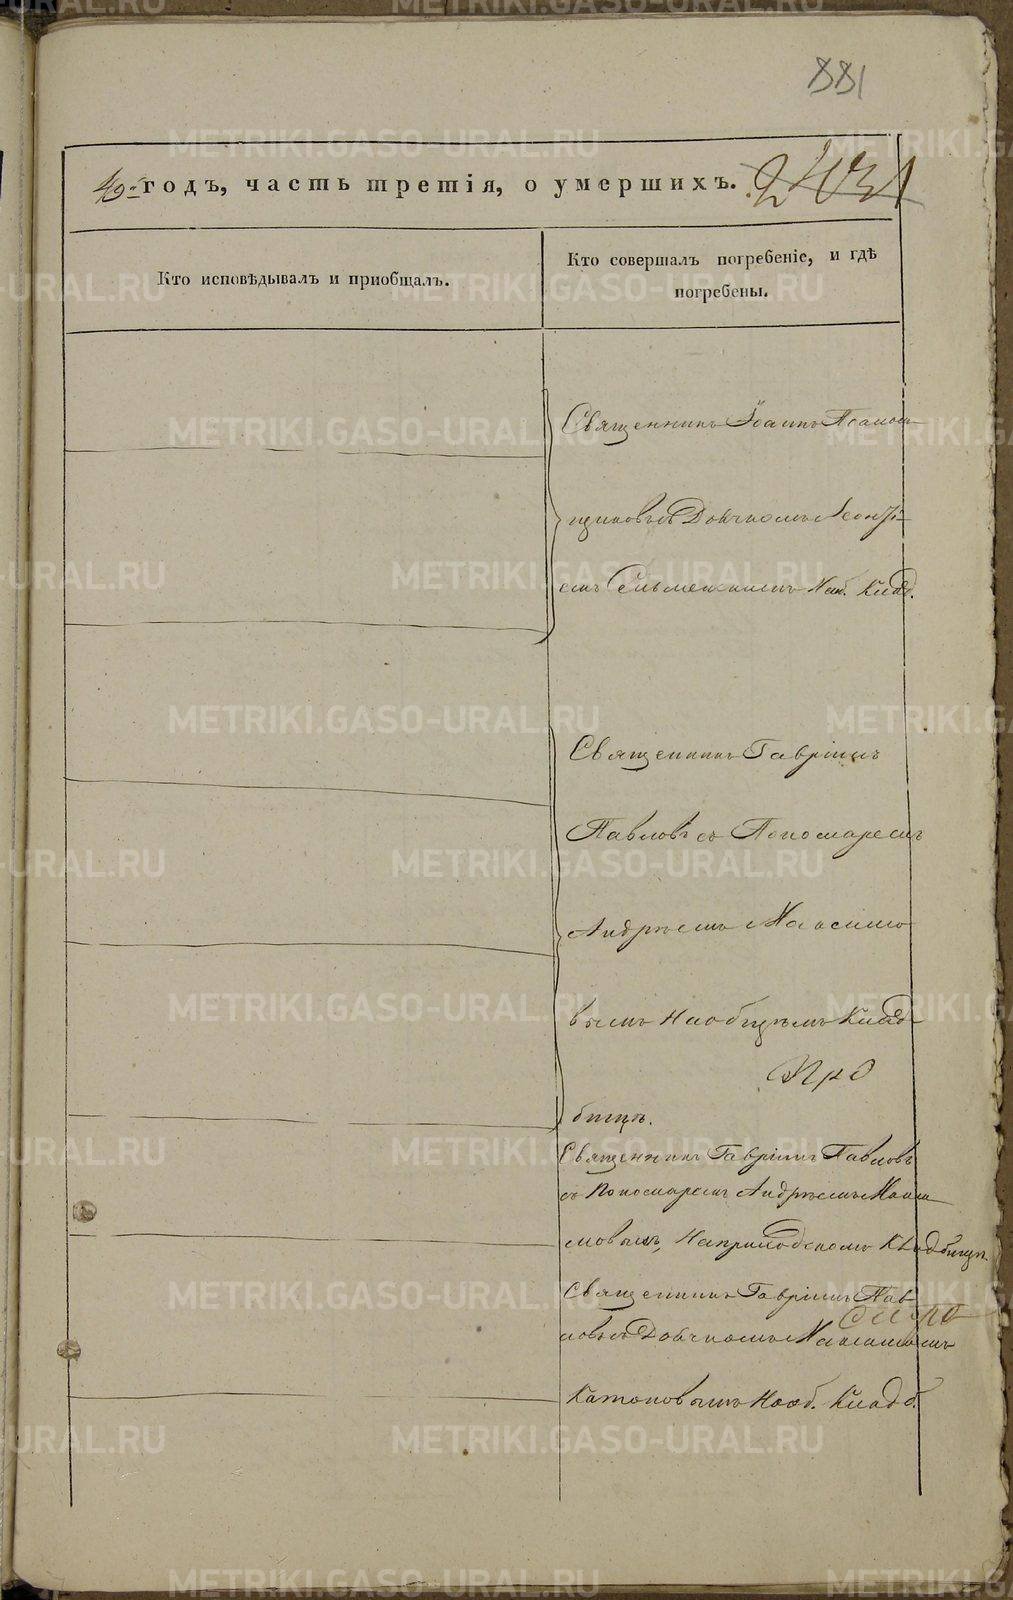 881
40 годъ, часть третія, о умершихъ. 2431
Кто исповѣдывалъ и приобщалъ.
Кто совершалъ погребеніе, и гдѣ
погребены.
Священникъ Іоаннъ
Дьячкомъ Леонті-
емъ Наоб. Клад.
Священникъ Гавріилъ
Павловъ съ Пономаремъ
Андреемъ Максимо
вымъ Наобщемъ Клад
бищѣ.
Священникъ Гавріилъ Павловъ
съ Пономаремъ Андреемъ Макси
мовымъ, Наприходскомъ Кладбищѣ.
Священникъ Гавріилъ Пав
ловъ съ Дьячкомъ
Катоковымъ Нооб. Кладб.
METRIKI.GASO-URAL.RU